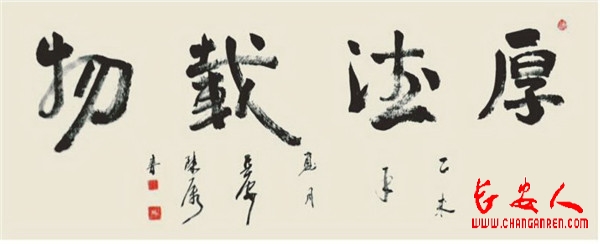 厚德載物
乙未
年
夏月
长安人
WWW.CHANGANREN.COM